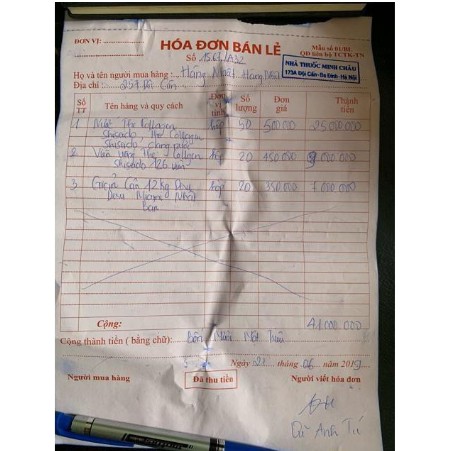 ĐƠN VỊ:
HÓA ĐƠN BÁN LẺ
Mẫu số 01/BL
QĐ bên bq TCTK-TN
Số
NHÀ THUỐC MINH CHÂU
175A Đội Cấn-Ba Đình-Hà Nội
Họ và tên người mua hàng:
Địa chỉ: Đội Cấn
Số TT Tên hàng và quy cách Đơn vị tính Số lượng Đơn giá Thành tiền
1 Nước The Collagen hộp 50 500.000 25.000.000
shiseido The Collagen
shiseido dạng nước
2 Viên uống The Collagen hộp 20 450.000 9.000.000
shiseido 126 viên
3 Giảm Cân 12kg hộp 20 350.000 7.000.000
Nhật
Bản
Cộng: 41.000.000
Cộng thành tiền (bằng chữ): Bốn Mươi Mốt Triệu
Ngày 21 tháng 06 năm 2019
Người mua hàng Đã thu tiền Người viết hóa đơn
Anh Tú